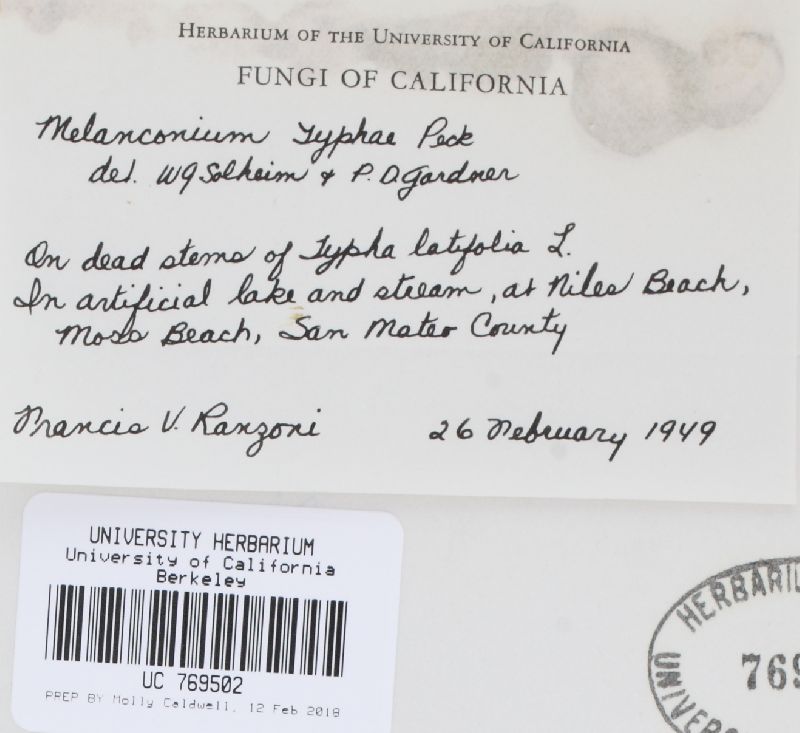 HERBARIUM OF THE UNIVERSITY OF CALIFORNIA
FUNGI OF CALIFORNIA
Melanconium Typhae Peck
det. WG Solheim & P. D. Gardner
On dead stems of Typha latifolia L.
In artificial lake and stream, at Niles Beach,
Moss Beach, San Mateo County
Francis V. Ranzoni 26 February 1949
UNIVERSITY HERBARIUM
University of California
Berkeley
UC 769502
PREP BY Molly Caldwell, 12 Feb 2018
HERBARIU
769
UNIVERS